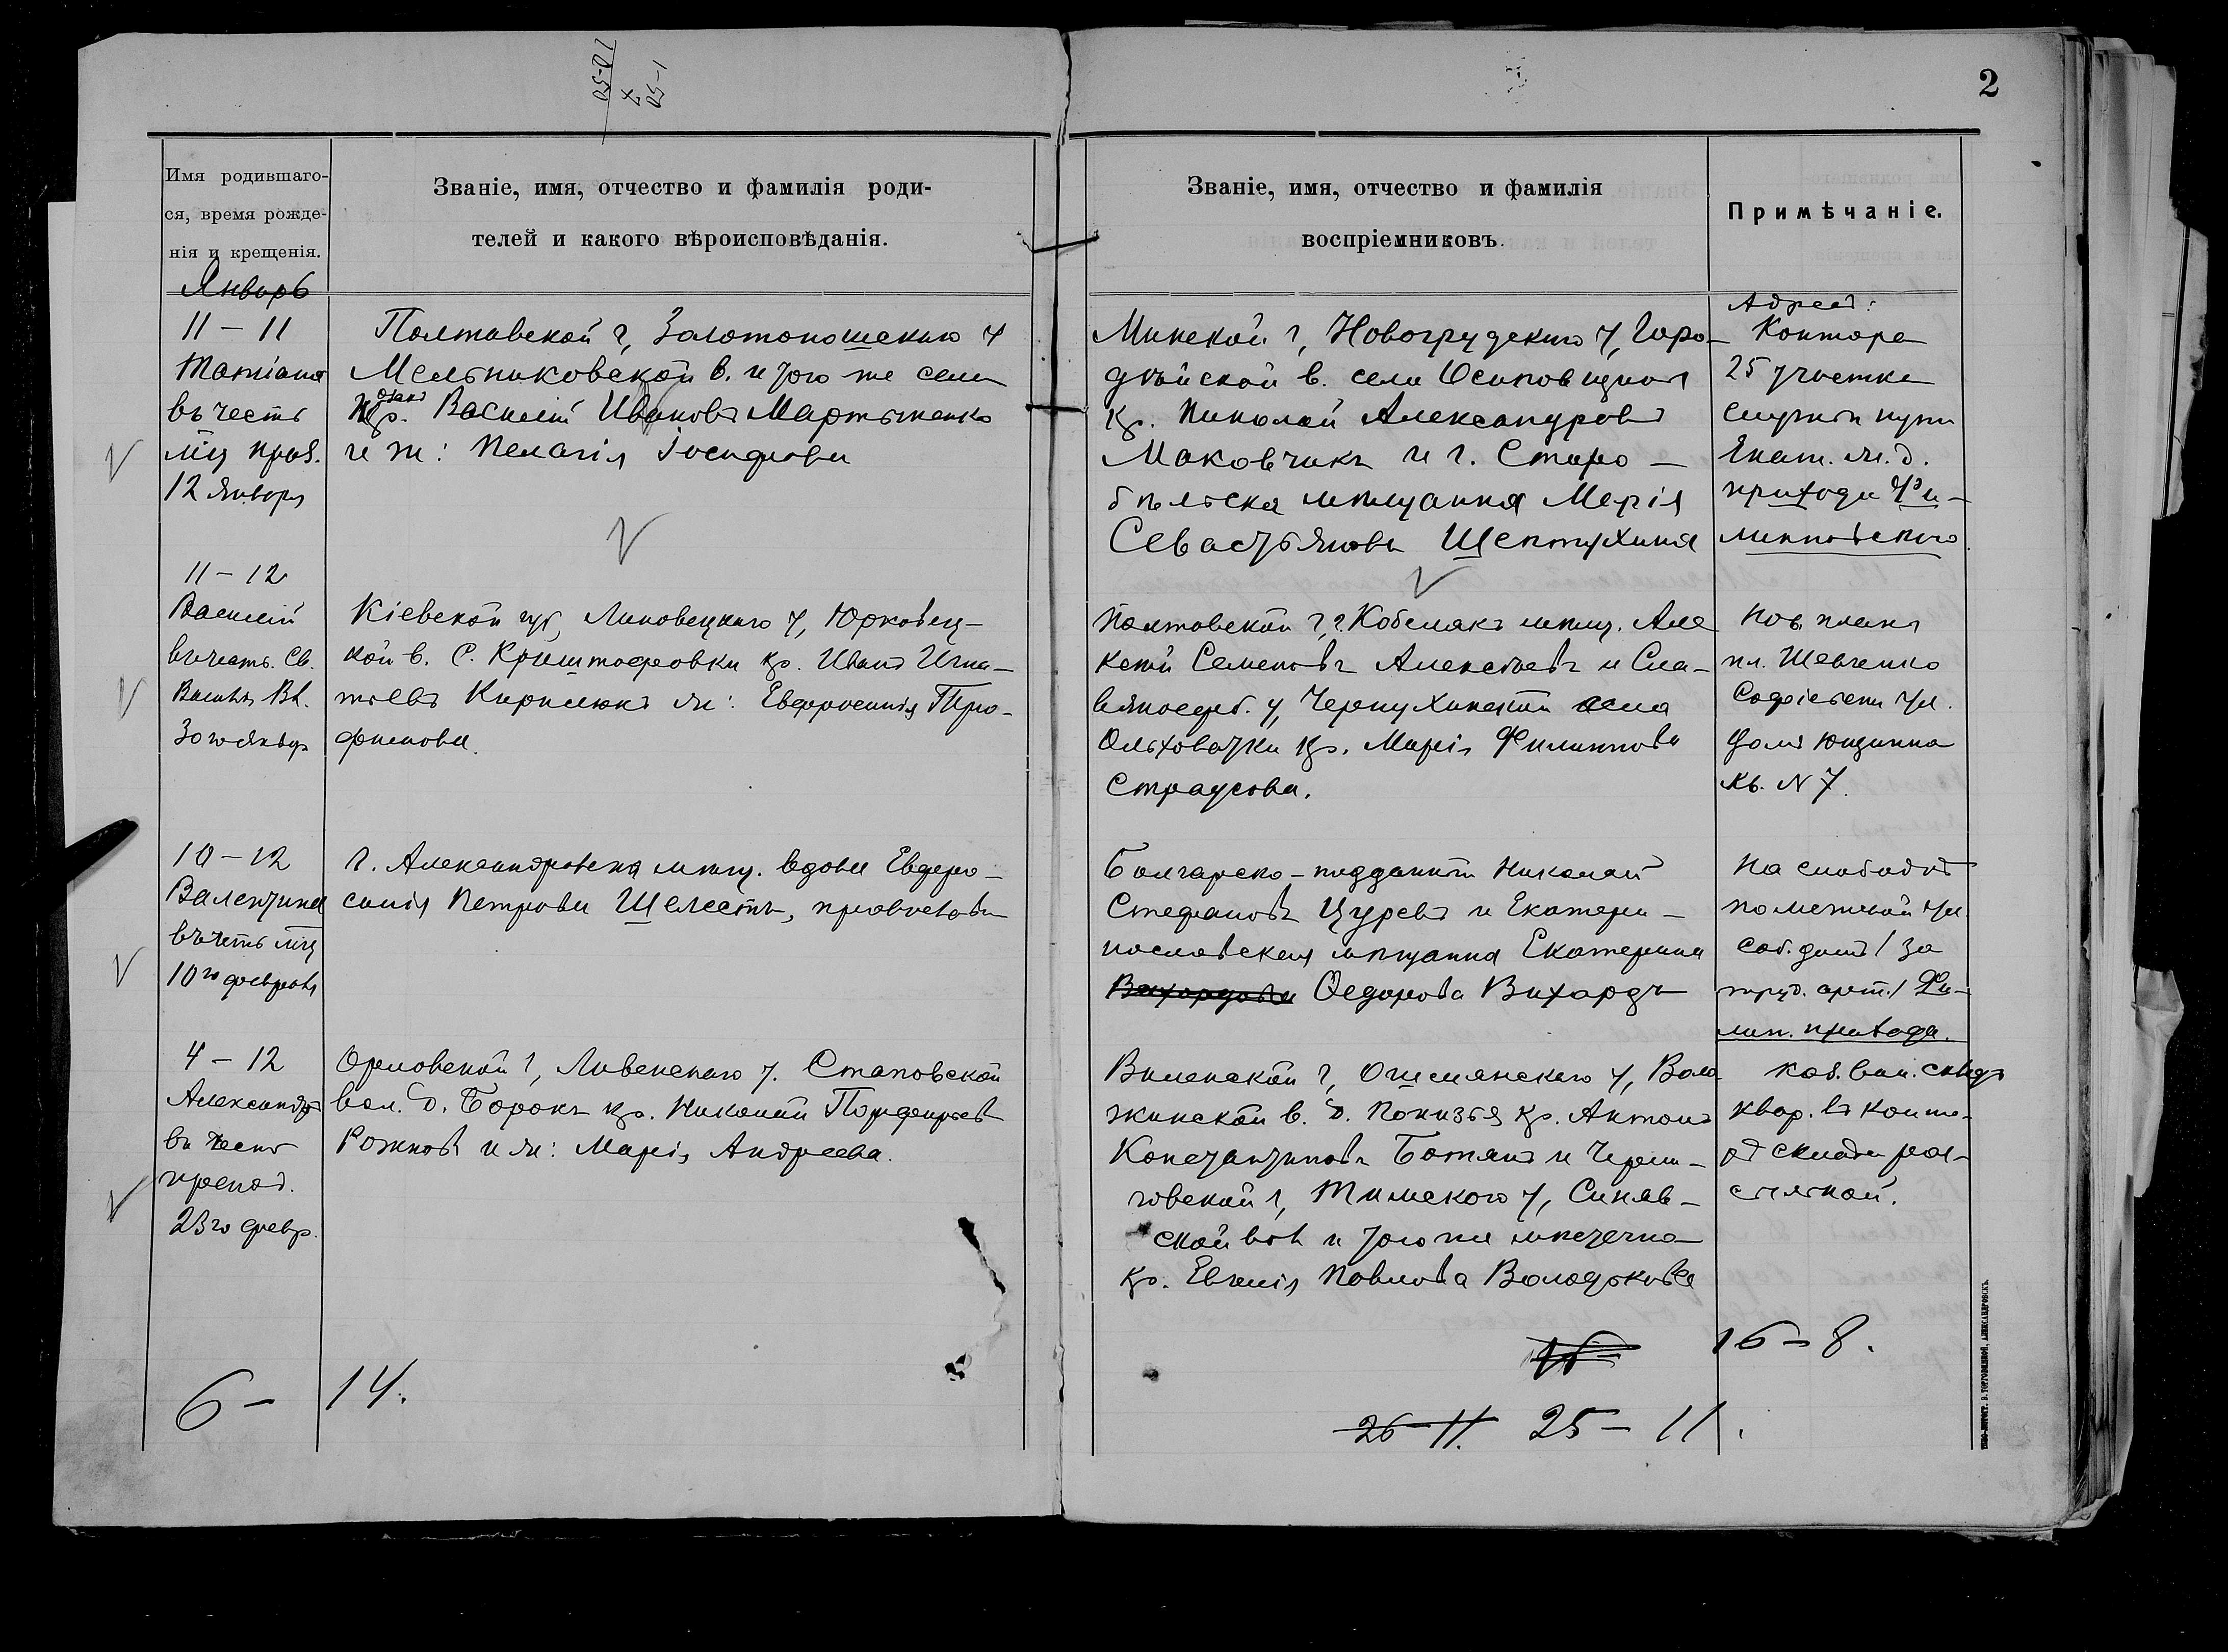 2
Имя родившаго-
ся, время рожде-
нія и крещенія.
Званіе, имя, отчество и фамилія роди-
телей и какого вѣроисповѣданія.
Званіе, имя, отчество и фамилія
воспріемниковъ.
Примѣчаніе.
Январь
11 - 11
Татіана
въ честь
мц прав.
12 января
Полтавской г, Золотоношскаго у
Мельниковской в. и того же села
кр. Василій Ивановъ Мартыненко
и ж: Пелагія Іосифова
Минской г, Новогрудскаго у, Горо-
дѣйской в. села Осиповщина
кр. Николай Александровъ
Маковчикъ и г. Старо-
бѣльска мѣщанка Марія
Севастьянова Шептухина
Адресъ:
Контора
25 участка
службы пути
Екат. ж. д.
прихода Фи-
липповскаго
11 - 12
Василій
въ честь. Св.
Василія Вл.
30го январ
Кіевской губ, Липовецкаго у, Юрковец-
кой в. с. Криштофовки кр. Иванъ Игна-
тьевъ Кирилюкъ ж: Евфросинія Тро-
фимова.
Полтавской г, г. Кобелякъ мѣщ. Але
ксѣй Семеновъ Алексѣевъ и Сла-
вяносерб. у, Черкухинской села
Ольховатки кр. Марія Филиппова
Страусова.
Нов. планъ
пл. Шевченко
Софіевск ул.
домъ Юдина
кв. N 7.
10 - 12
Валентина
въ честь мц
10го февраля
г. Александровска мѣщ. вдова Евфро-
синія Петрова Шелестъ, православн
Болгарско-подданный Николай
Стефановъ Цуревъ и Екатери-
нославская мѣщанка Екатерина
Федорова Вихардъ
На слободкѣ
по ул
соб. домъ / за
труд. арт. / Фи-
лип. прихода.
4 - 12
Александръ
въ честь
препод.
23го февр.
Орловской г, Ливенскаго у. Становской
вол. д. Борокъ кр. Николай Порфирьевъ
Рожновъ и ж: Марія Андреева.
Виленской г, Ошмянскаго у, Вола
жинской в. д. Понизья кр. Антонъ
Константиновъ Ботянъ и Черни-
говской г, у, Синяв-
ской вол и того же мѣстечка
кр. Евгенія Павлова Володькова
каз. вин. складъ
квар. въ конто-
рѣ склада

6 - 14.
16 - 8.
26 - 11. 25 - 11.
ТИПО-ЛИТОГР. В. ТОРГОВИЦКОЙ, АЛЕКСАНДРОВСКЪ.